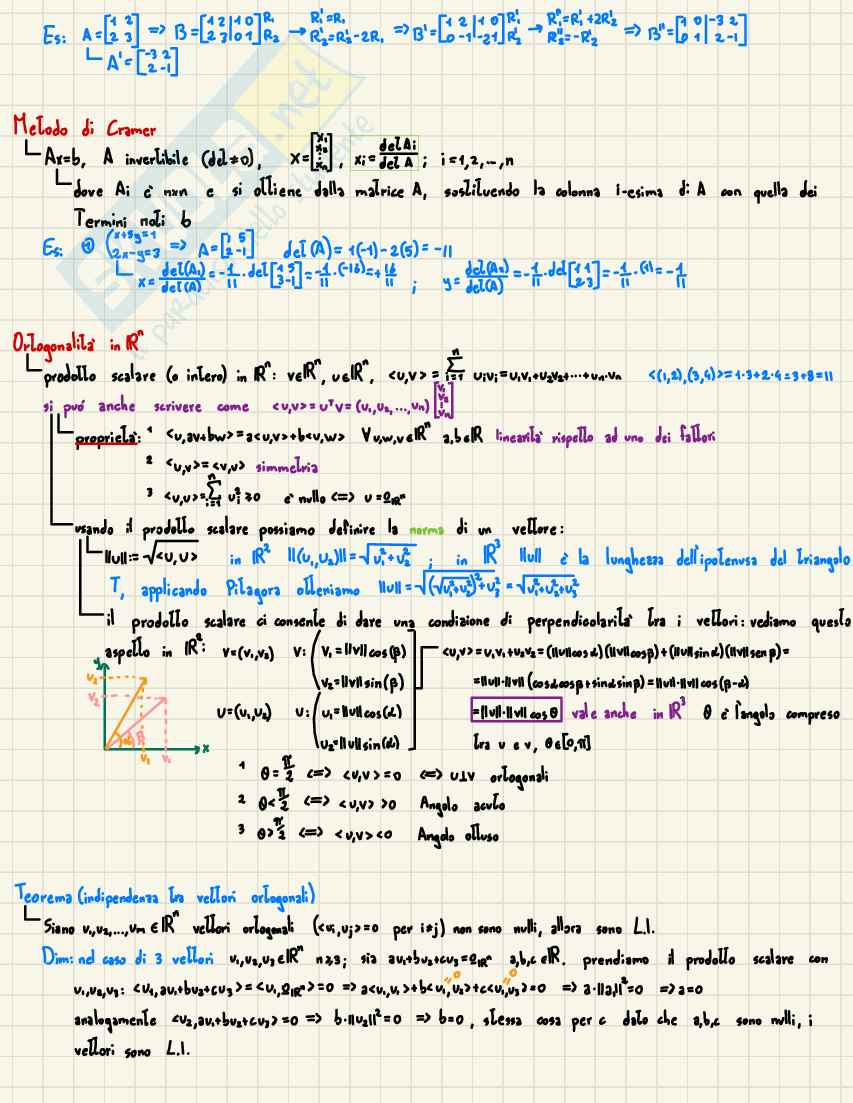 Es: A=[1 2; 2 3] => B=[1 2|1 0; 2 3|0 1] R₁ R₂ → R₁'=R₁ R₂'=R₂'-2R₁ => B'=[1 2|1 0; 0 -1|-2 1] R₁' R₂' → R₁''=R₁'+2R₂' R₂''=-R₂' => B''=[1 0|-3 2; 0 1|2 -1]
A'=[-3 2; 2 -1]
Metodo di Cramer
Ax=b, A invertibile (det≠0), X=[x₁ x₂ ⋮ xₙ], xᵢ=det Aᵢ/det A; i=1,2,...,n
dove Ai è nxn e si ottiene dalla matrice A, sostituendo la colonna i-esima di A con quella dei
Termini noti b
Es: ① {x+5y=1 2x-y=3 => A=[1 5; 2 -1] det(A)= 1(-1)-2(5)=-11
x=det(A₁)/det(A)=-1/11·det[1 5; 3 -1]=-1/11·(-16)=+16/11 ; y=det(A₂)/det(A)=-1/11·det[1 1; 2 3]=-1/11·(1)=-1/11
Ortogonalità in ℝⁿ
prodotto scalare (o intero) in ℝⁿ: v∈ℝⁿ, u∈ℝⁿ, <u,v>=∑ᵢ₌₁ⁿ uᵢvᵢ=u₁v₁+u₂v₂+...+uₙ·vₙ <(1,2),(3,4)>=1·3+2·4=3+8=11
si può anche scrivere come <u,v>=uᵀv=(u₁,u₂,...,uₙ)[v₁ v₂ ⋮ vₙ]
proprietà: 1 <u,av+bw>=a<u,v>+b<u,w> ∀u,w,v∈ℝⁿ a,b∈ℝ linearità rispetto ad uno dei fattori
2 <u,v>=<v,u> simmetria
3 <u,u>=∑ᵢ₌₁ⁿ uᵢ²≥0 è nullo <=> u=0ℝⁿ
usando il prodotto scalare possiamo definire la norma di un vettore:
||u||:=√<u,u> in ℝ² ||(u₁,u₂)||=√u₁²+u₂² ; in ℝ³ ||u|| è la lunghezza dell'ipotenusa del triangolo
T, applicando Pitagora otteniamo ||u||=√(√u₁²+u₂²)²+u₃²=√u₁²+u₂²+u₃²
il prodotto scalare ci consente di dare una condizione di perpendicolarità tra i vettori: vediamo questo
aspetto in ℝ²: v=(v₁,v₂) v: {v₁=||v||cos(β) <u,v>=u₁v₁+u₂v₂=(||u||cosα)(||v||cosβ)+(||u||sinα)(||v||senβ)=
y u₂ v₂ v₂=||v||sin(β) =||u||·||v||(cosαcosβ+sinαsinβ)=||u||·||v||cos(β-α)
u=(u₁,u₂) u: {u₁=||u||cos(α) =||u||·||v||cosθ vale anche in ℝ³ θ è l'angolo compreso
α β x v₁ v₁ u₂=||u||sin(α) tra u e v, θ∈[0,π]
1 θ=π/2 <=> <u,v>=0 <=> u⊥v ortogonali
2 θ<π/2 <=> <u,v> >0 Angolo acuto
3 θ>π/2 <=> <u,v> <0 Angolo ottuso
Teorema (indipendenza tra vettori ortogonali)
Siano v₁,v₂,...,vₘ∈ℝⁿ vettori ortogonali (<vᵢ,vⱼ>=0 per i≠j) non sono nulli, allora sono L.I.
Dim: nel caso di 3 vettori v₁,v₂,v₃∈ℝⁿ n≥3; sia av₁+bv₂+cv₃=0ℝⁿ a,b,c∈ℝ. prendiamo il prodotto scalare con
v₁,v₂,v₃: <v₁,av₁+bv₂+cv₃>=<v₁,0ℝⁿ>=0 => a<v₁,v₁>+b<v₁,v₂>+c<v₁,v₃>=0 => a·||a₁||²=0 => a=0
=0 =0
analogamente <v₂,av₁+bv₂+cv₃>=0 => b·||v₂||²=0 => b=0, stessa cosa per c dato che a,b,c sono nulli, i
vettori sono L.I.